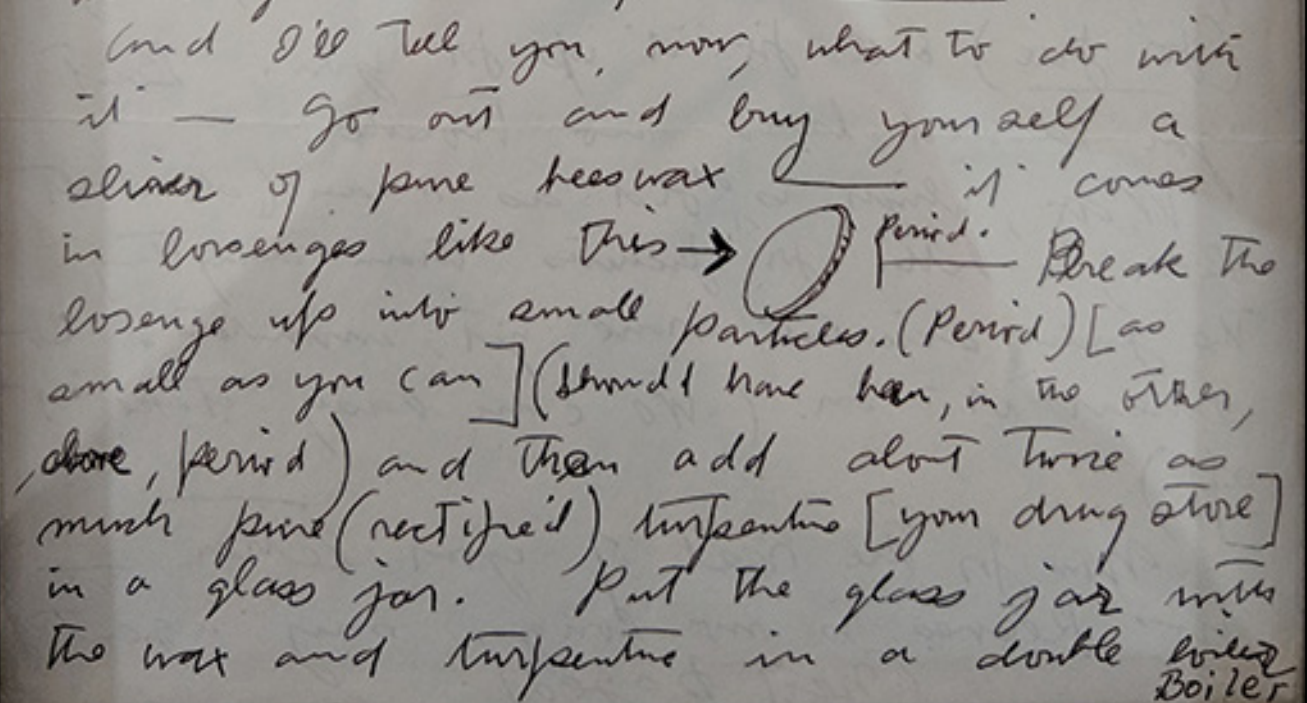 and I'll tell you, now, what to do with
it — go out and buy yourself a
sliver of pure beeswax — it comes
in losenges like this → Period. — Break the
losenge up into small particles. (Period) [as
small as you can] (should have been, in the other,
, above, period) and then add about twice as
much pure (rectifie'd) turpentine [your drug store]
in a glass jar. Put the glass jar with
the wax and turpentine in a double boiler
Boiler